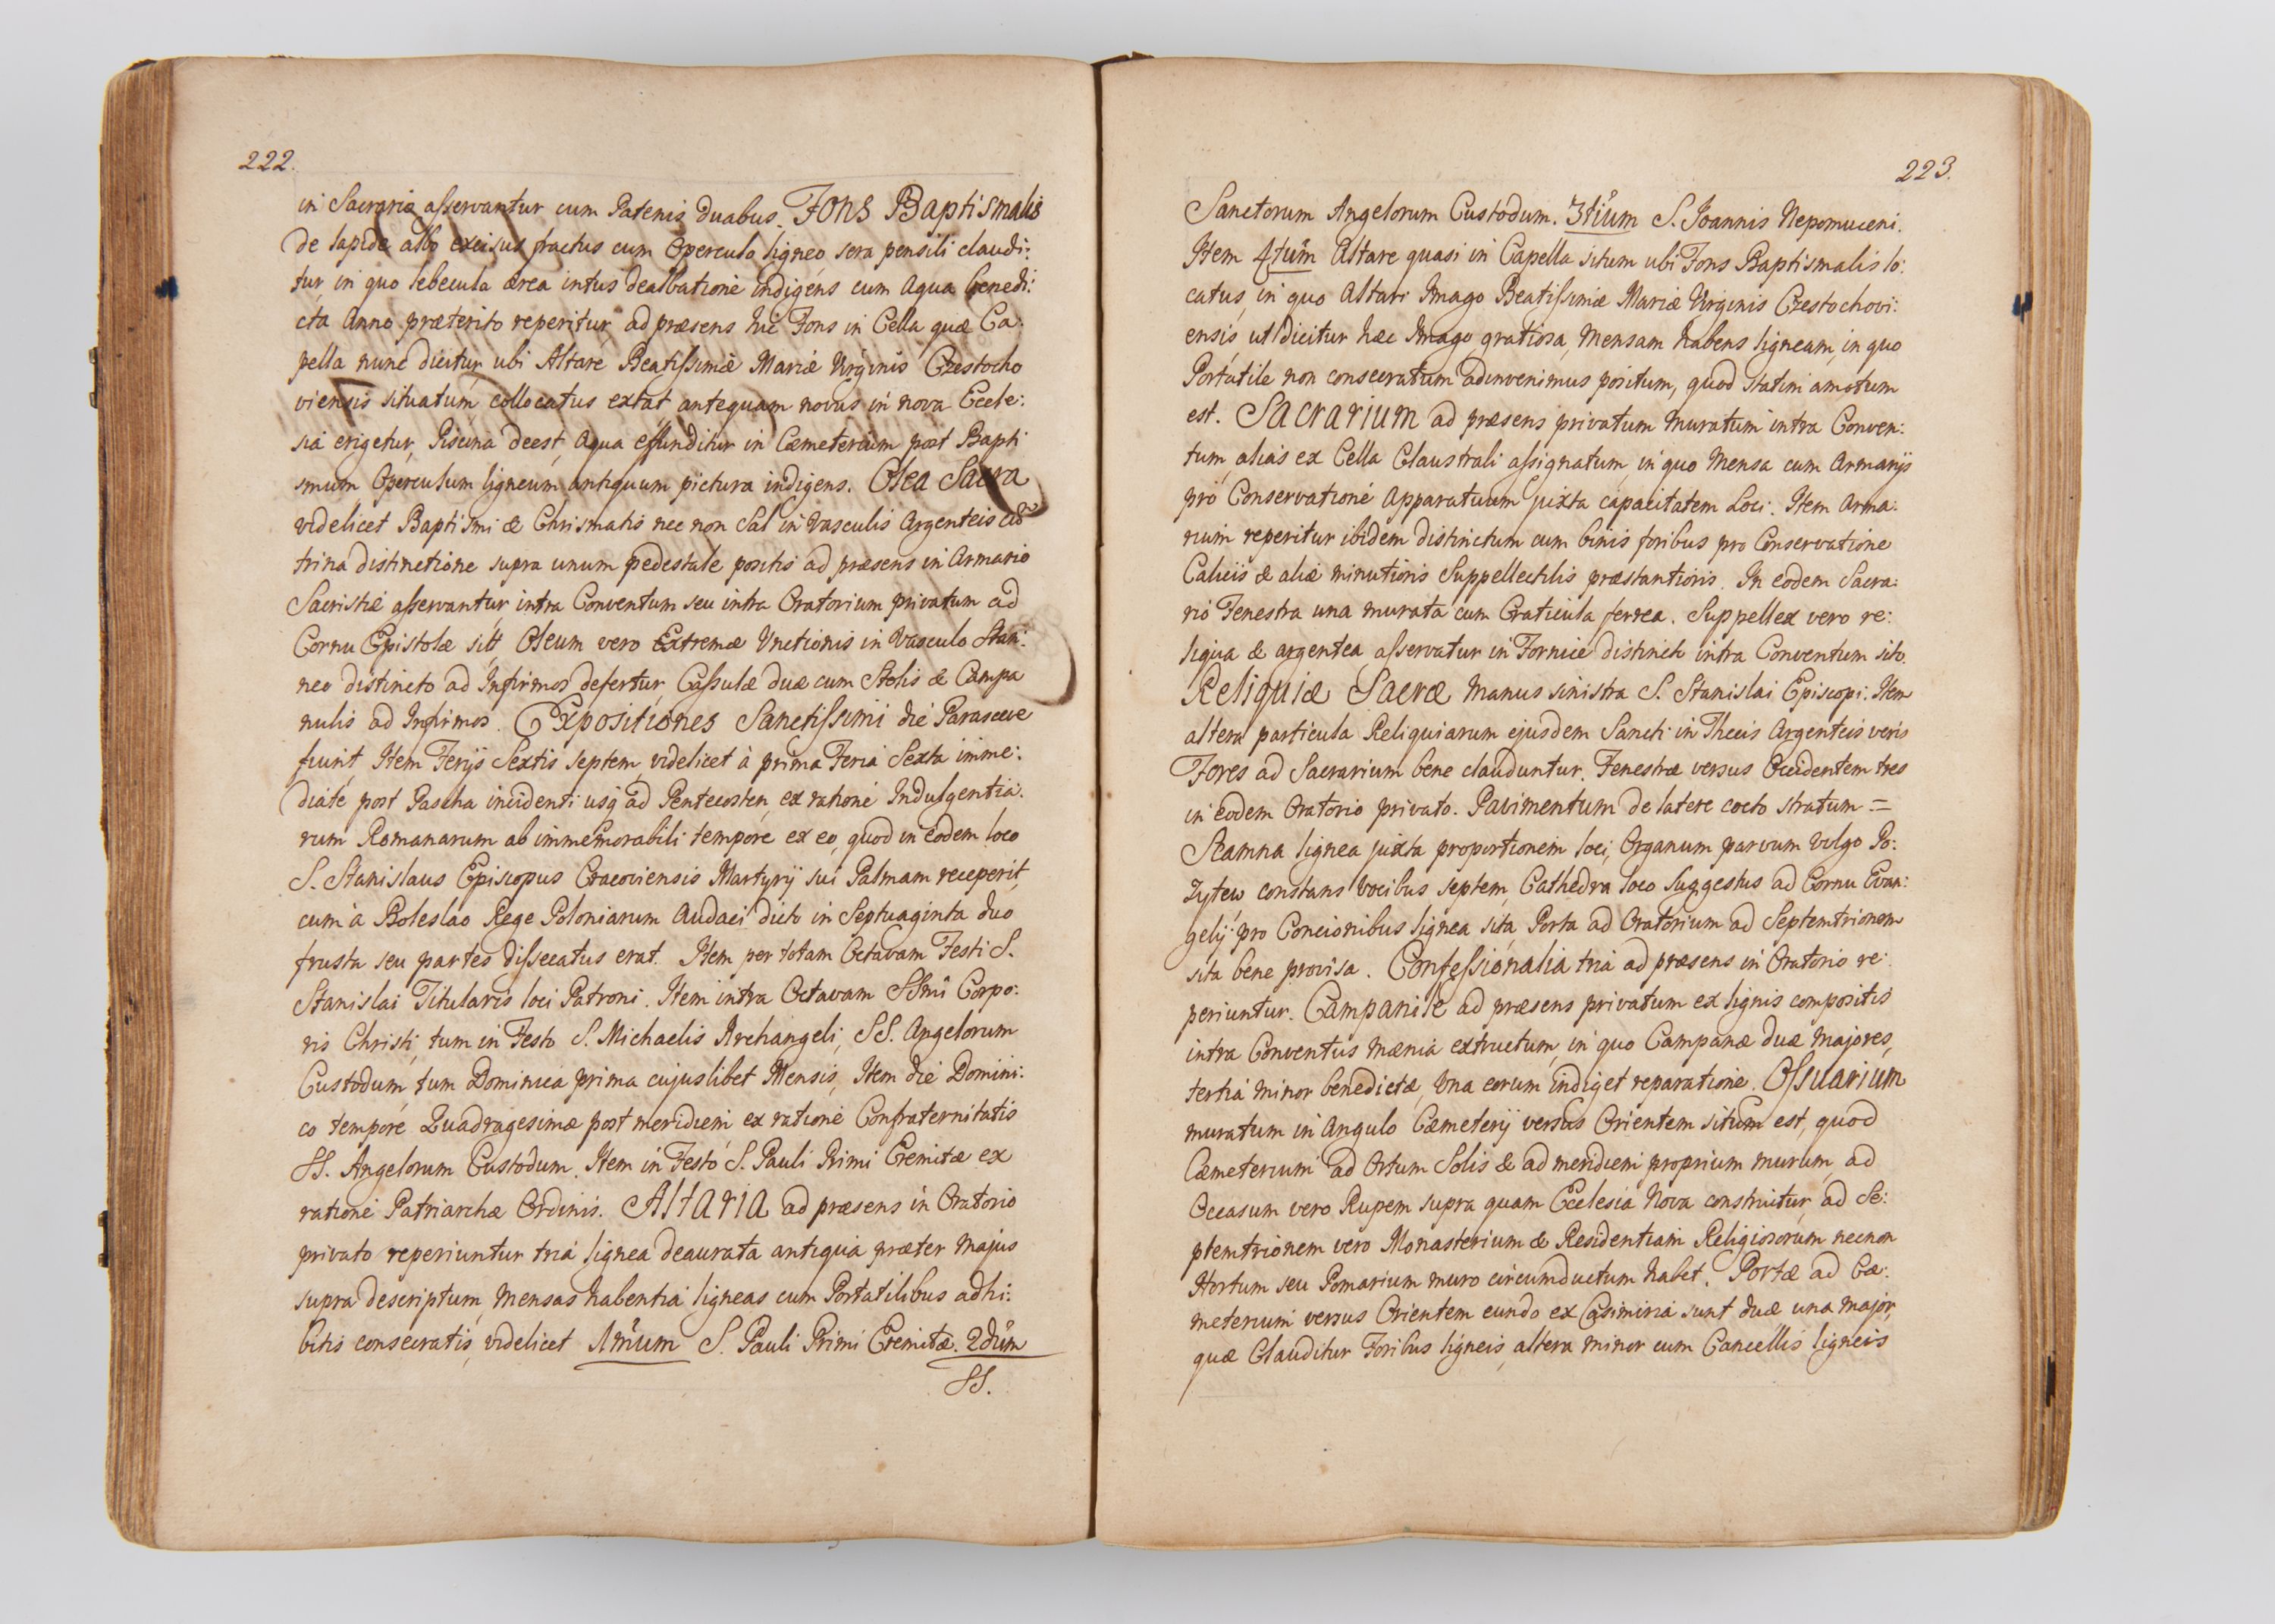 222.
in Sacrario asservantur cum Patenis duabus. Fons Baptismalis
de lapide albo excisus fractus cum Operculo ligneo, sera pensili claudi:
tur, in quo lebecula ærea intus dealbatione indigens cum Aqua benedi:
cta Anno præterito reperitur, ad præsens hic Fons in Cella quæ Ca:
pella nunc dicitur, ubi Altare Beatissimæ Mariæ Virginis Czestocho
viensis situatum, collocatus extat antequam novus in nova Eccle:
sia erigetur, Piscina deest, Aqua effunditur in Cæmeterium post Bapti
smum Operculum ligneum antiquum pictura indigens. Olea Sacra
videlicet Baptismi & Chrismatis nec non Sal in Vasculis Argenteis cũ
trina distinctione supra unum pedestale positis ad præsens in Armario
Sacristiæ asservantur, intra Conventum seu intra Oratorium privatum ad
Cornu Epistolæ sitt Oleum vero Extremæ Unctionis in Vasculo Stan:
neo distincto ad Infirmos defertur, Cassulæ duæ cum Stolis & Campa
nulis ad Infirmos. Expositiones Sanctissimi die Parasceve
fiunt, Item Ferijs Sextis septem, videlicet à prima Feria Sexta imme:
diate, post Pascha incidenti usq ad Pentecosten, ex ratione Indulgentia:
rum Romanarum ab immemorabili tempore, ex eo, quod in eodem loco
S. Stanislaus Episcopus Cracoviensis Martyrij sui Palmam receperit,
cum à Boleslao Rege Poloniarum Audaci dicto in Septuaginta duo
frusta seu partes dissecatus erat. Item per totam Octavam Festi S.
Stanislai Titularis loci Patroni. Item intra Octavam SSmi Corpo:
ris Christi, tum in Festo S. Michaelis Archangeli, SS. Angelorum
Custodum, tum Dominica prima cujuslibet Mensis, Item die Domini:
co tempore Quadragesimæ post meridiem ex ratione Confraternitatis
SS. Angelorum Custodum. Item in Festo S. Pauli Primi Eremitæ ex
ratione Patriarchæ Ordinis. Altaria ad præsens in Oratorio
privato reperiuntur tria lignea deaurata antiqua præter Majus
supra descriptum, Mensas habentia ligneas cum Portatilibus adhi:
bitis consecratis, videlicet 1mum S. Pauli Primi Eremitæ. 2dum
SS.
223.
Sanctorum Angelorum Custodum. 3tium S. Joannis Nepomuceni.
Item 4tum Altare quasi in Capella situm ubi Fons Baptismalis lo:
catus, in quo Altari Imago Beatissimæ Mariæ Virginis Czestochovi:
ensis, ut dicitur hæc Imago gratiosa, Mensam habens ligneam, in quo
Portatile non consecratum adinvenimus positum, quod statim amotum
est. Sacrarium ad præsens privatum Muratum intra Conven:
tum, alias ex Cella Claustrali assignatum, in quo Mensa cum Armarijs
pro Conservatione Apparatuum juxta capacitatem Loci. Item Arma:
rium reperitur ibidem distinctum cum binis foribus pro Conservatione
Calicis & aliæ minutioris Suppellectilis præstantioris. In eodem Sacra:
rio Fenestra una murata cum Craticula ferrea. Suppellex vero re:
liqua & argentea asservatur in Fornice distincto intra Conventum sito.
Reliquiæ Sacræ Manus sinistra S. Stanislai Episcopi. Item
altera particula Reliquiarum ejusdem Sancti in Thecis Argenteis veris
Fores ad Sacrarium bene clauduntur. Fenestræ versus Occidentem tres
in eodem Oratorio privato. Pavimentum de latere cocto stratum =
Scamna lignea juxta proportionem loci, Organum parvum vulgo Po:
zytew constans Vocibus septem, Cathedra loco Suggestus ad Cornu Evan:
gelij pro Concionibus lignea sita, Porta ad Oratorium ad Septemtrionem
sita bene provisa. Confessionalia tria ad præsens in Oratorio re:
periuntur. Campanile ad præsens privatum ex lignis compositis
intra Conventus Mænia extructum, in quo Campanæ duæ Majores,
tertia Minor benedictæ, Una eorum indiget reparatione. Ossuarium
muratum in Angulo Cæmeterij versus Orientem situm est, quod
Cæmeterium ad Ortum Solis & ad meridiem proprium murum, ad
Occasum vero Rupem supra quam Ecclesia Nova construitur, ad Se:
ptemtrionem vero Monasterium & Residentiam Religiosorum necnon
Hortum seu Pomarium muro circumductum habet. Portæ ad Cæ:
meterium versus Orientem eundo ex Casimiria sunt duæ una Major,
quæ Clauditur Foribus ligneis, altera minor cum Cancellis ligneis